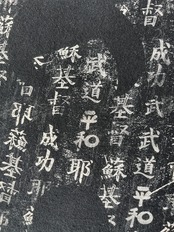 督
成功武武道平和
基督
蘇基督
武道平和耶
蘇基督
成功
耶蘇基督